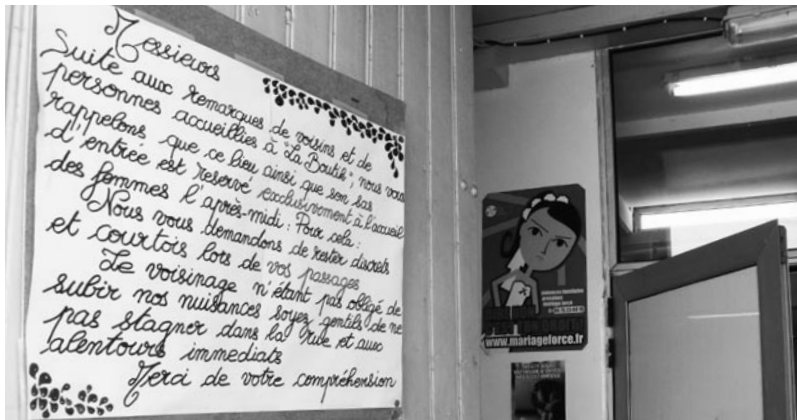 Messieurs
Suite aux remarques de voisins et de
personnes accueillies à "La Boutik", nous vous
rappelons que ce lieu ainsi que son sas
d'entrée est reservé exclusivement à l'accueil
des femmes l'après-midi : Pour cela :
Nous vous demandons de rester discrets
et courtois lors de vos passages
Le voisinage n'étant pas obligé de
subir nos nuisances soyez gentils de ne
pas stagner dans la rue et aux
alentours immediats
Merci de votre compréhension
www.mariageforce.fr